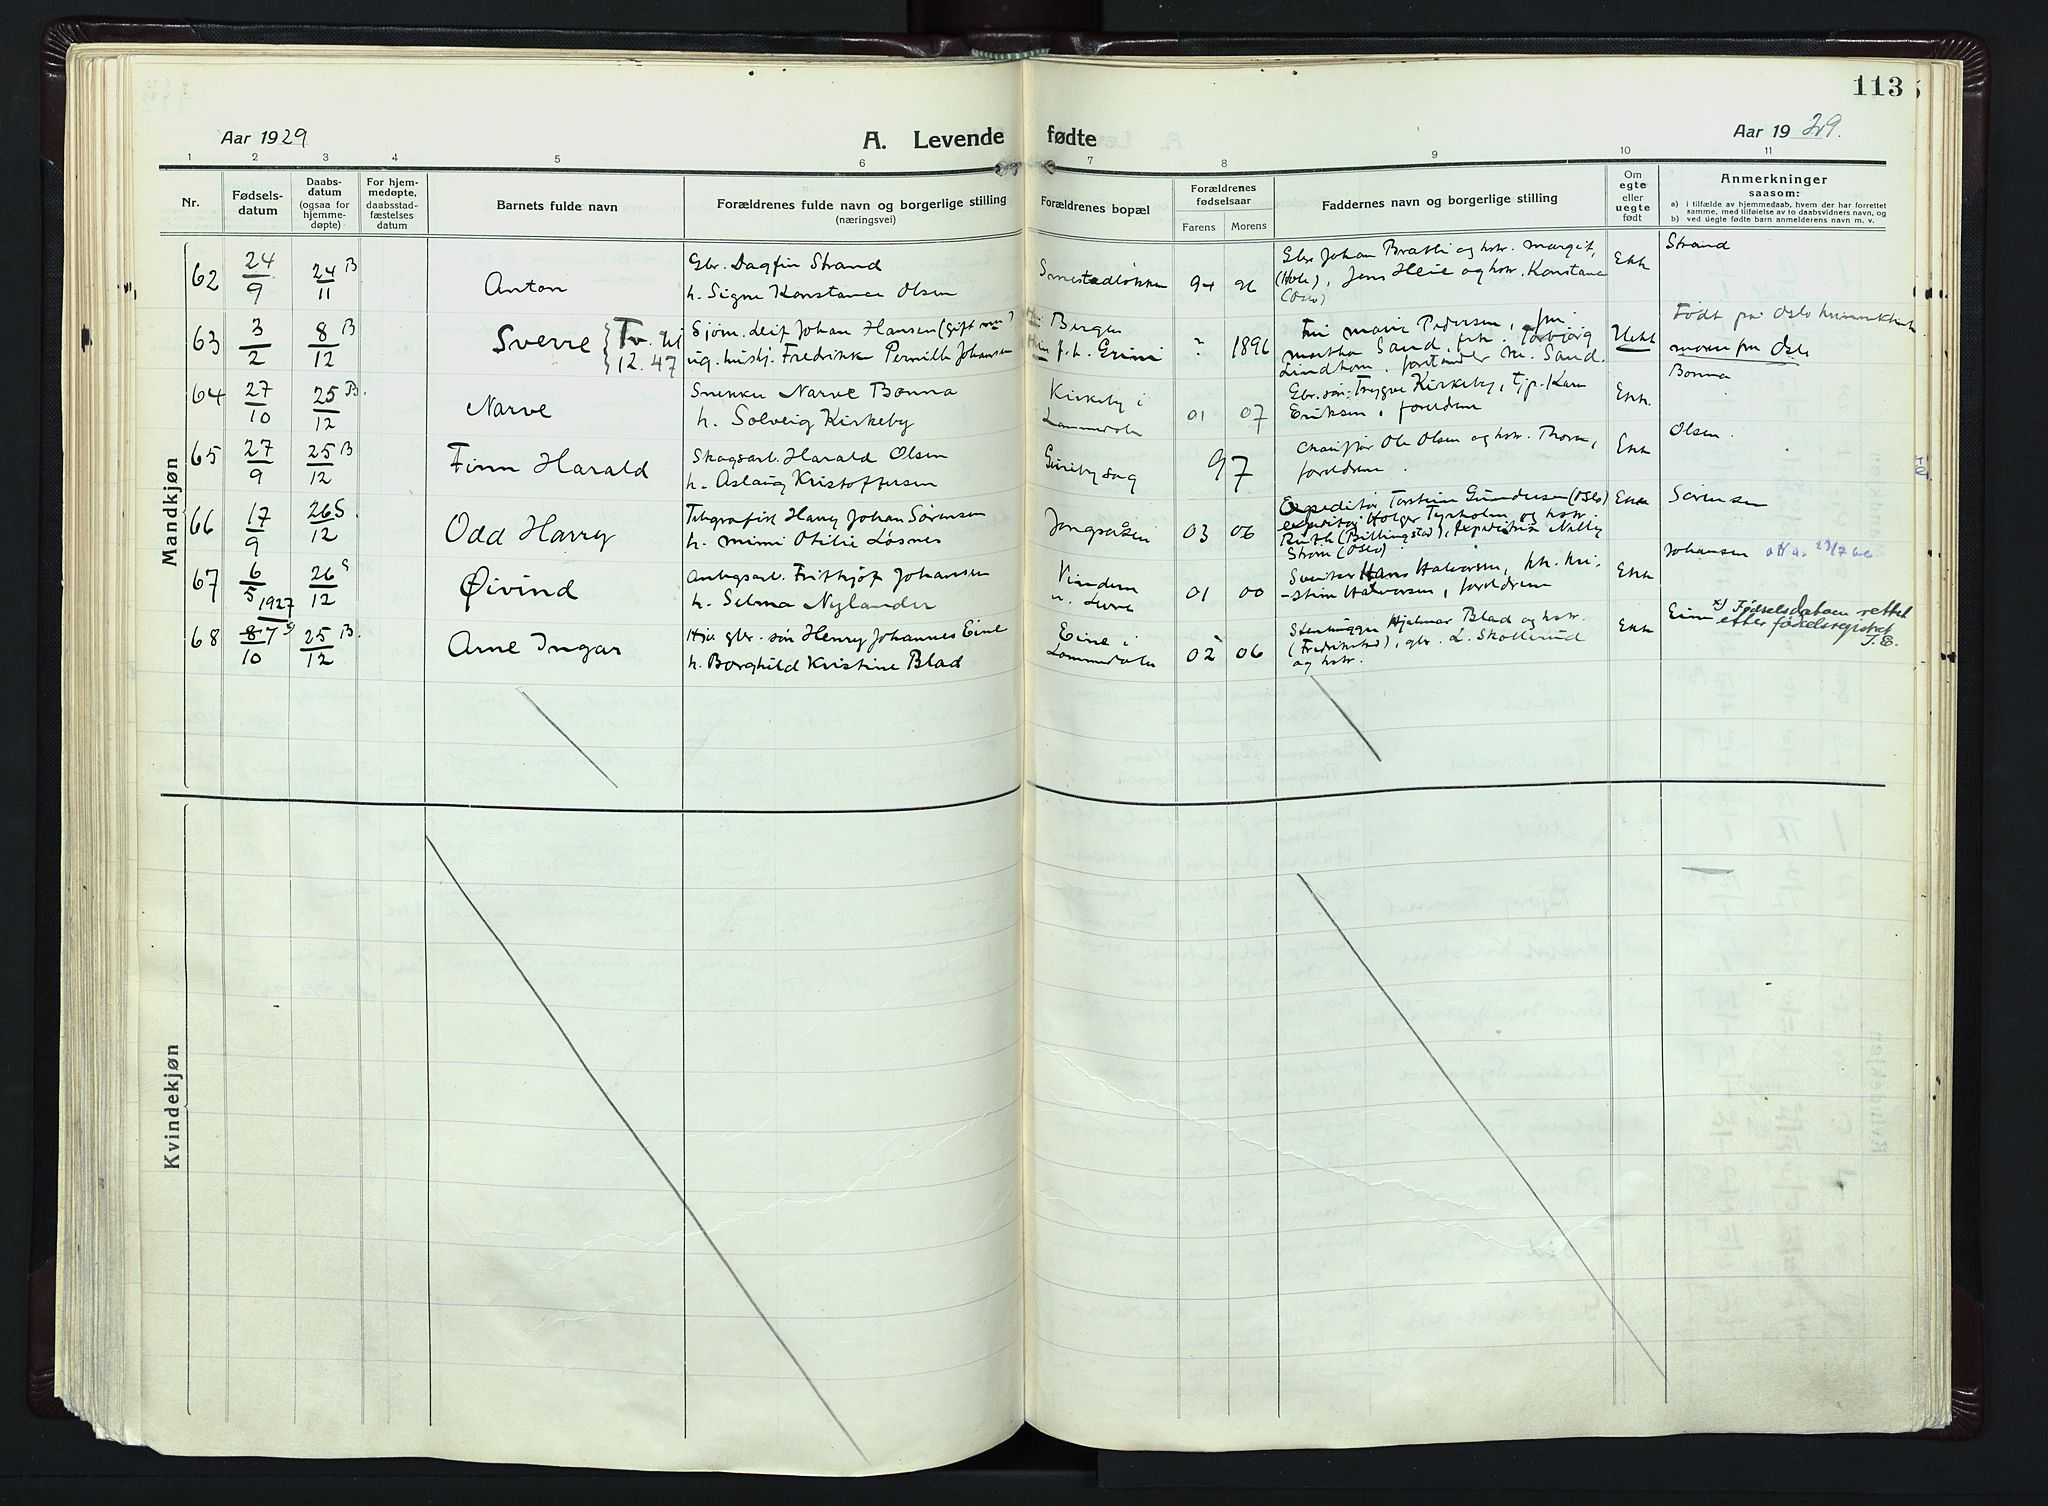 113
Aar 1929
A. Levende fødte
Aar 1929.
1 2 3 4 5 6 7 8 9 10 11
Nr.
Fødsels-
datum
Daabs-
datum
(ogsaa for
hjemme-
døpte)
For hjem-
medøpte,
daabsstad-
fæstelses
datum
Barnets fulde navn
Forældrenes fulde navn og borgerlige stilling
(næringsvei)
Forældrenes bopæl
Forældrenes
fødselsaar
Farens Morens
Faddernes navn og borgerlige stilling
Om
egte
eller
uegte
født
Anmerkninger
saasom:
a) i tilfælde av hjemmedaab, hvem der har forrettet
samme, med tilføielse av to daabsvidners navn, og
b) ved uegte fødte barn anmelderens navn m. v.
Mandkjøn
62 24/9 24/11 B Anton
Gbr. Dagfin Strand
h. Signe Konstance Olsen
94 96
Gbr. Johan Bratli og hstr. Margit,
(Hole), Jens Heie og hstr. Konstance
(Oslo)
Ekte
Strand
63 3/2 8/12 B Sverre
12.47
Sjøm. Leif Johan Hansen (gift)
ug. hushj. Fredrikke Pernille Johansen
Bergen
f. h. Grini
? 1896
Fru Marie Pedersen, frk.
Martha Sand, frk. Torbjørg
Lindholm, forstander M. Sand.
Uekt
Født på Oslo kvinneklinikk
moren fra Oslo
64 27/10 25/12 B. Narve
Snekker Narve Bonna
h. Solveig Kirkeby
Kirkeby i
Lommedalen
01 07
Gbr.søn Trygve Kirkeby, tjp. Karen
Eriksen, foreldrene
Ekte.
Bonna
65 27/9 25/12 B Finn Harald
Skogsarb. Harald Olsen
h. Aslaug Kristoffersen
Guriby sag
97
Chauffør Ole Olsen og hstr. Thora,
foreldrene.
Ekte
Olsen.
66 17/9 26/12 S. Odd Harry
Telegrafist Harry Johan Sørensen
h. Mimi Otilie Løsnes
Jongsåsen
03 06
Expeditør Torstein Gundersen (Oslo)
expeditør Holger Tyrholm og hstr.
Ruth (Billingstad), expeditrise Nelly
Strøm (Oslo)
Ekte
Sørensen
67 6/5 1927 26/12 S Øivind
Anlegsarb. Frithjof Johansen
h. Selma Nylander
Vindern
01 00
Hans Halvorsen, frk. Kri-
stine Halvorsen, foreldrene
Ekte
Johansen
68 8/10 7 25/12 B. Arne Ingar
Hja gbr. søn Henry Johannes Eine
h. Borghild Kristine Blad
Eine i
Lommedalen
02 06
Stenhugger Hjalmar Blad og hstr.
(Fredrikstad), gbr. L. Skollerud
og hstr.
Ekte
Eine x) Fødselsdatoen rettet
etter fødselsregistret
T.E.
Kvindekjøn